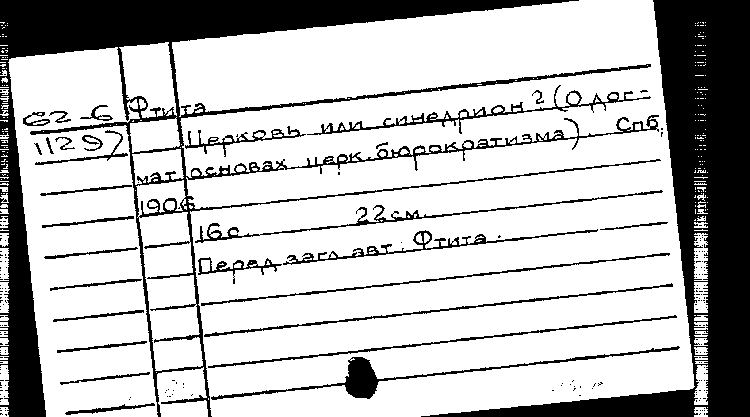 62-6 Фтита
11297 Церковь или синедрион? (О дог-
мат. основах церк. бюрократизма). Спб,
1906.
16 с. 22 см.
Перед загл. авт.: Фтита.